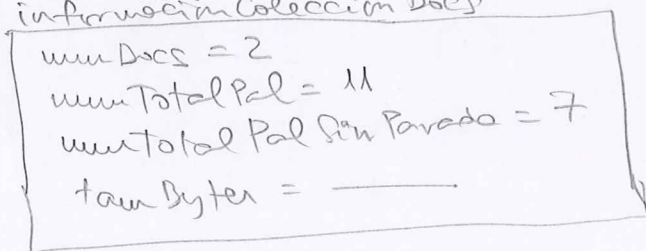 informacionColeccionDocs
numDocs = 2
numTotalPal = 11
numTotalPalSinParada = 7
tamBytes = ______